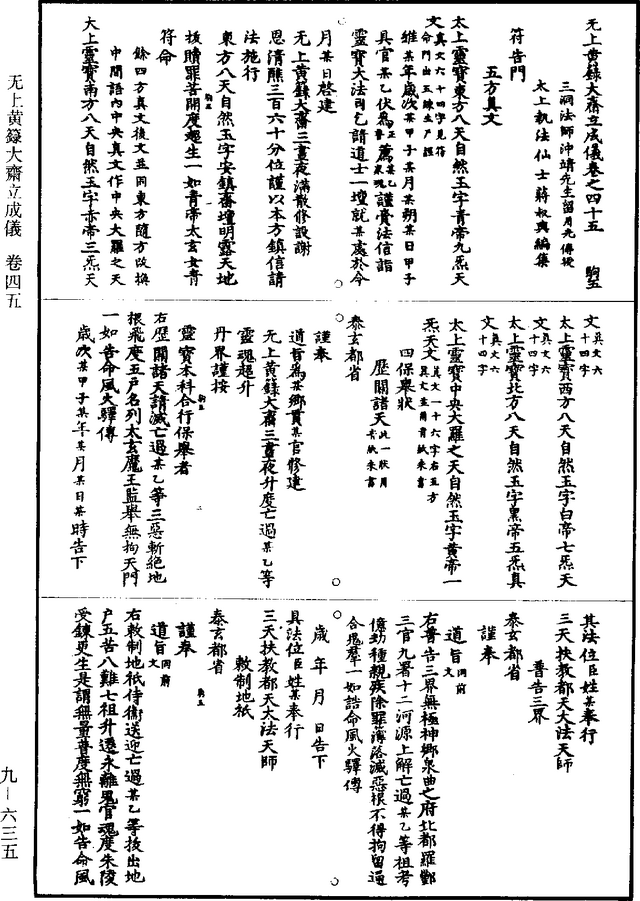 无上黄籙大齋立成儀卷之四十五　駒五
三洞法師沖靖先生留用光傳授
太上執法仙士蔣叔輿編集
符告門
五方真文
太上靈寶東方八天自然玉字青帝九炁天
文真文六十四字見符命門出五鍊生尸謹
維某年歲次某甲子某月某朔某日甲子
具官某乙伏為正薦某乙謹賫法信詣
靈寶大法司乞請道士一壇就某處於今
月某日啓建
无上黄籙大齋三晝夜滿散修設謝
恩清醮三百六十分位謹以本方鎮信請
法施行
東方八天自然玉字安鎮齋壇明露天地
拔贖罪苦開度超生一如青帝太玄女青
符命
餘四方真文後文並同東方隨方改換
中間語內中央真文作中央大羅之天
太上靈寶南方八天自然玉字赤帝三炁天
文真文六十四字
太上靈寶西方八天自然玉字白帝七炁天
文真文六十四字
太上靈寶北方八天自然玉字黑帝五炁真
文真文六十四字
太上靈寶中央大羅之天自然玉字黄帝一
炁天文真文一十六字右五方真文並用青紙朱書
四保舉狀
歷關諸天此一狀用青紙朱書
泰玄都省
謹奉
道旨為某鄉貫某官修建
无上黄籙大齋三晝夜升度亡過某乙等
靈魂超升
丹界謹按
靈寶本科合行保舉者
右歷關諸天請滅亡過某乙等三惡斬絶地
根飛度五戶名列太玄魔王監舉無拘天門
一如告命風火驛傳
歲次某甲子某年某月某日某時告下
其法位臣姓某奉行
三天扶教都天大法天師
普告三界
泰玄都省
謹奉
道旨文同前
右普告三界無極神鄉泉曲之府北都羅酆
三官九署十二河源上解亡過某乙等祖考
億劫種親疾除罪簿落滅惡根不得拘留逼
合鬼羣一如誥命風火驛傳
歲　年　月　日告下
具法位臣姓某奉行
三天扶教都天大法天師
敕制地祇
泰玄都省
謹奉
道旨文同前
右敕制地祇侍衛送迎亡過某乙等拔出地
户五苦八難七祖升遷永離鬼官魂度朱陵
受鍊更生是謂無量普度無窮一如告命風
无上黄籙大齋立成儀　卷四五
九—六三五